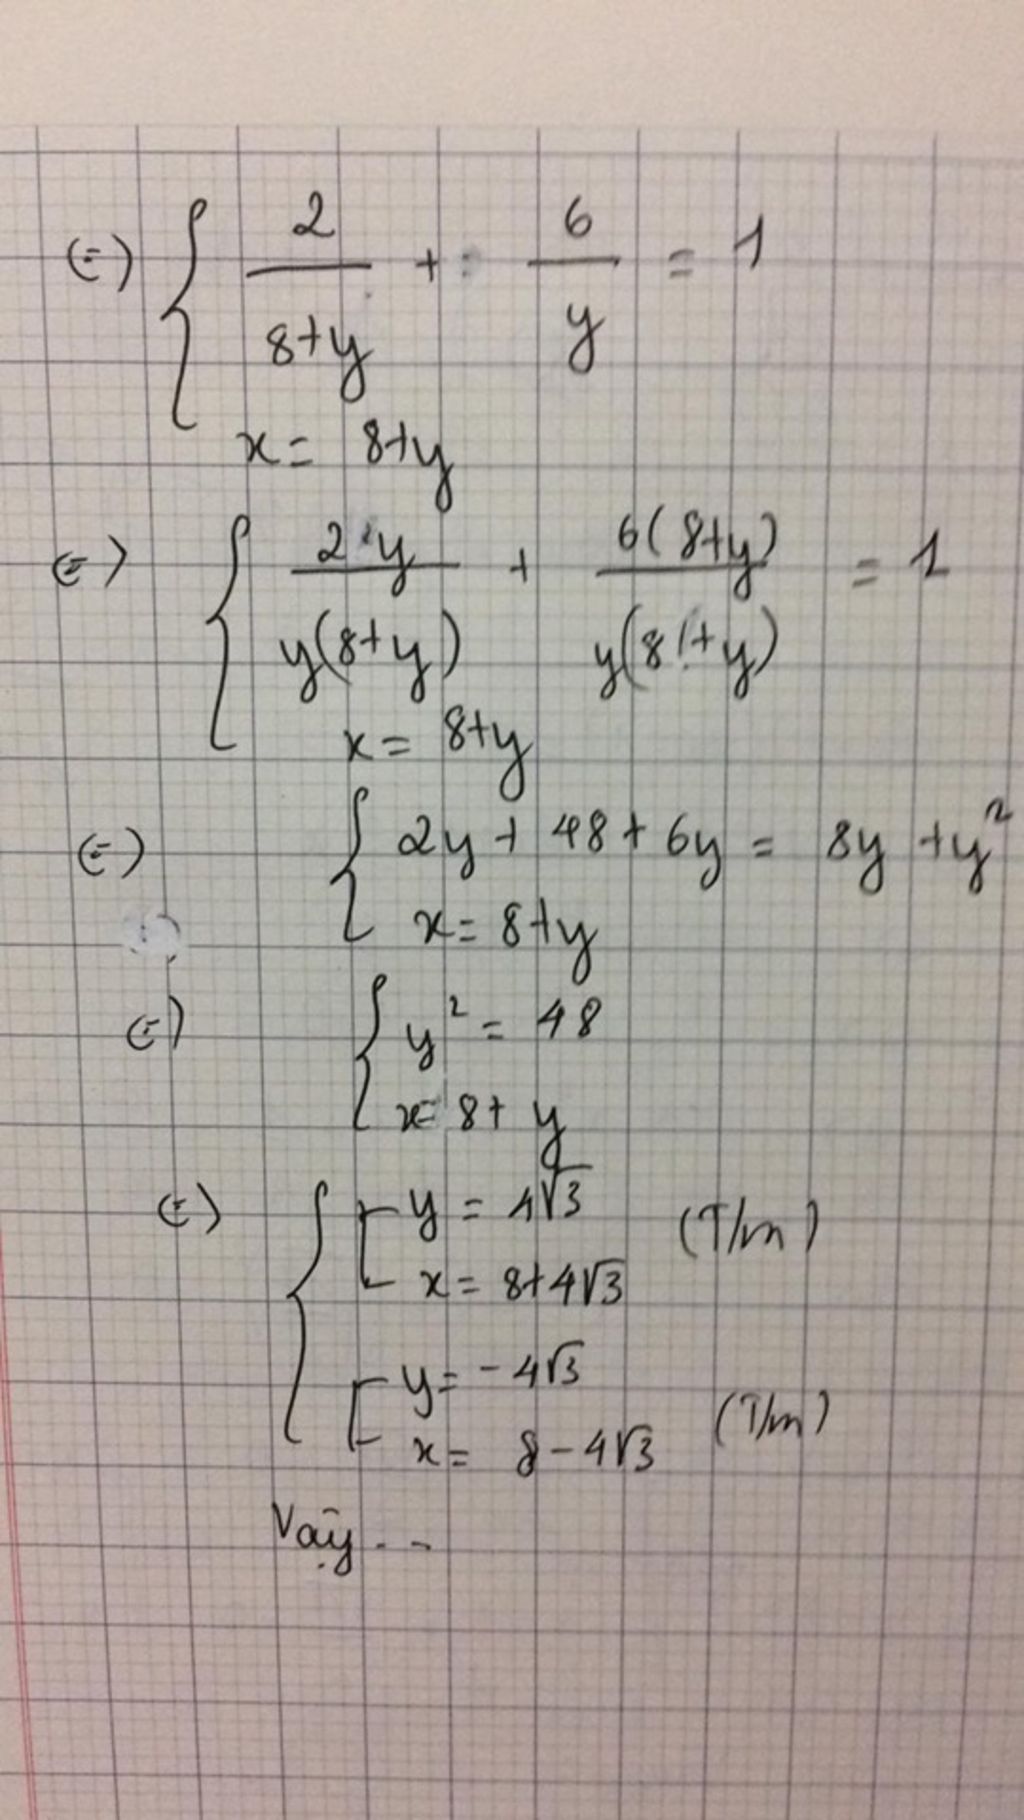 (=) { 2/(8+y) + 6/y = 1
x = 8+y
(=) { 2·y/(y(8+y)) + 6(8+y)/(y(8+y)) = 1
x = 8+y
(=) { 2y + 48 + 6y = 8y + y²
x = 8+y
(=) { y² = 48
x = 8 + y
(=) { [ y = 4√3 (T/m)
x = 8+4√3
[ y = -4√3 (T/m)
x = 8 - 4√3
Vậy - -